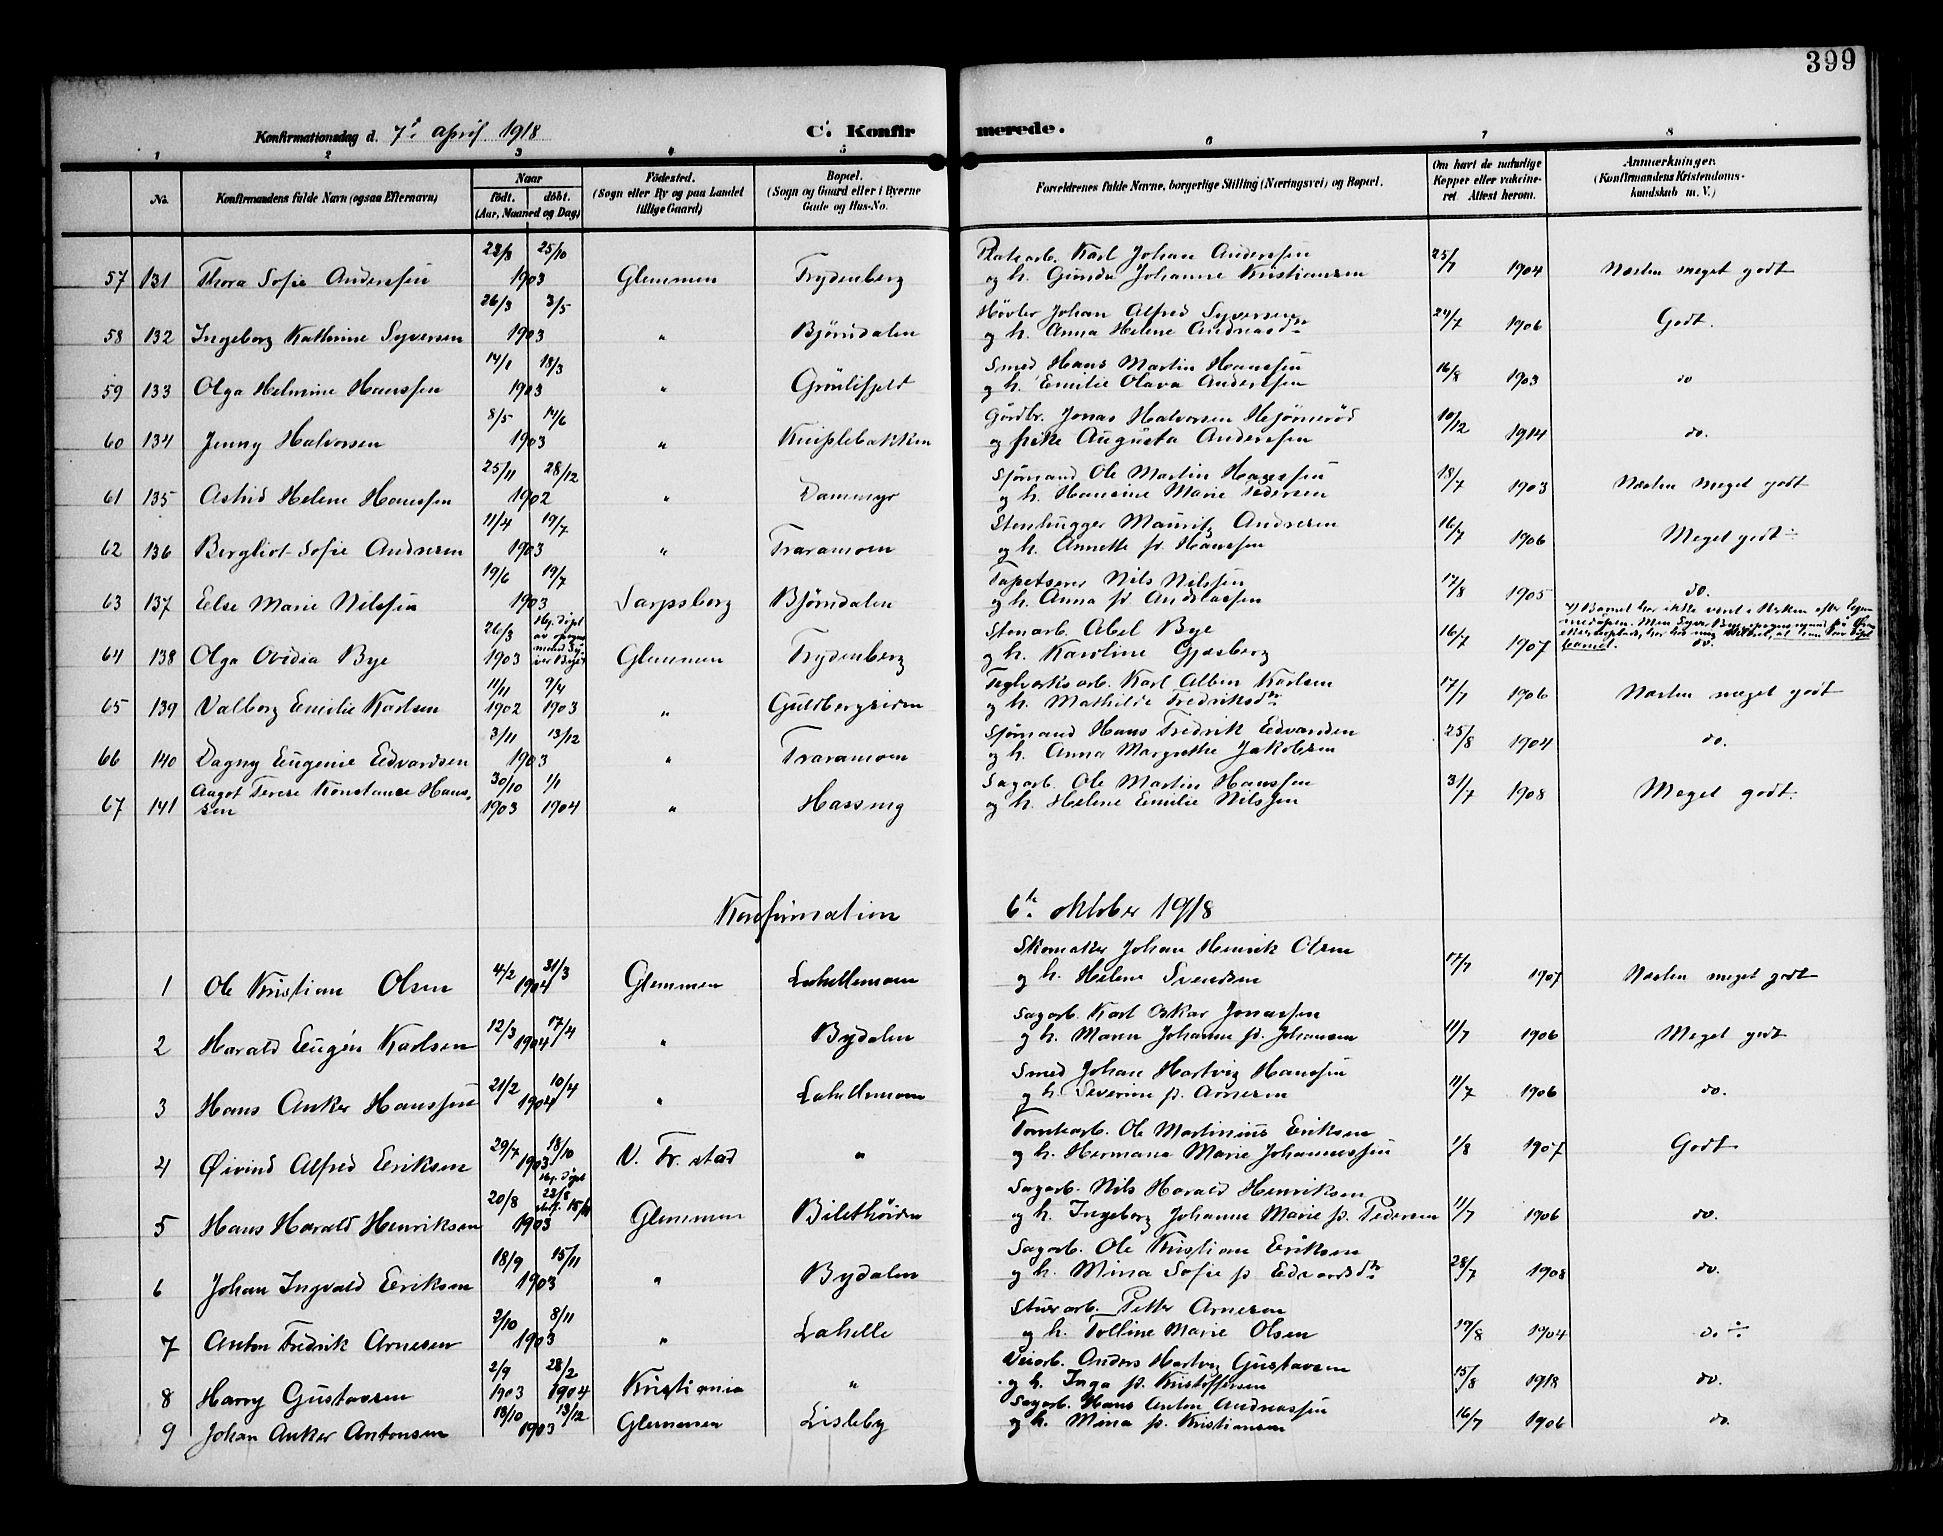 399
Konfirmationsdag d. 7' april 1918 C. Konfir merede.
1 2 3 4 5 6 7 8
No. Konfirmandens fulde Navn (ogsaa Efternavn) Naar født. døbt. (Aar, Maaned og Dag) Fødested. (Sogn eller By og paa Landet tillige Gaard) Bopæl. (Sogn og Gaard eller i Byerne Gade og Hus-No. Forældrenes fulde Navne, borgerlige Stilling (Næringsvei) og Bopæl. Om havt de naturlige Kopper eller vakcineret Attest herom. Anmærkninger. (Konfirmandens Kristendomskundskab m. V.)
23/3 25/10 Platearb. Karl Johan Anderssen 25/7
57 131 Thora Sofie Anderssen 1903 Glemmen Trydenberg og h. Gunda Johanne Kristiansen 1904 Næsten meget godt
26/3 3/5 Høvler Johan Alfred Syversen
58 132 Ingeborg Kathrine Syversen 1903 " Bjørndalen og h. Anna Helene Andreasdtr 24/7 1906 Godt.
14/1 18/3 Smed Hans Martin Hanssen
59 133 Olga Helmine Hanssen 1903 " Grönlifjeld og h. Emilie Olava Anderssen 16/8 1903 do
8/5 14/6 Gårdbr. Jonas Halvorsen Hjörneröd
60 134 Jenny Halvorsen 1903 " Kniplebakken og pike Augusta Anderssen 10/12 1914 do.
25/11 28/12 Sjømand Ole Martin Hanssen
61 135 Astrid Helene Hanssen 1902 " Dammyr og h. Hansine Marie Pedersen 18/7 1903 Næsten meget godt
11/4 19/7 Stenhugger Mauritz Andresen
62 136 Bergliot Sofie Andresen 1903 " Traramoen og h. Annette f. Hanssen 16/7 1906 Meget godt ÷
19/6 19/7 Tapetserer Nils Nilssen
63 137 Else Marie Nilssen 1903 Sarpsborg Bjørndalen og h. Anna f. Andreassen 17/8 1905 do.
26/3 Hj. døpt av Stenarb. Abel Bye
64 138 Olga Ovidia Bye 1903 Glemmen Trydenberg og h. Karoline Gjøsberg 16/7 1907 Barnet har ikke været i Kirken efter barnet. do.
11/11 9/4 Teglverksarb. Karl Albin Karlsen
65 139 Valborg Emilie Karlsen 1902 1903 " Guldbergsiden og h. Mathilde Fredriksdtr 17/7 1906 Næsten meget godt
3/11 13/12 Sjømand Hans Fredrik Edvardsen
66 140 Dagny Eugenie Edvardsen 1903 " Traramoen og h. Anna Margrethe Jakobsen 25/8 1904 do.
Aagot Terese Konstance Hans- 30/10 1/1 Sagarb. Ole Martin Hanssen
67 141 sen 1903 1904 " Hassing og h. Helene Emilie Nilssen 31/7 1908 Meget godt.
Konfirmation 6te oktober 1918
4/2 31/3 Skomaker Johan Henrik Olsen
1 Ole Kristian Olsen 1904 Glemmen Lahellemoen og h. Helene Svendsen 17/7 1907 Næsten meget godt
12/3 17/4 Sagarb. Karl Oskar Jonassen
2 Harald Eugén Karlsen 1904 " Bydalen og h. Maren Johanne f. Johansen 11/7 1906 Meget godt
21/2 10/4 Smed Johan Hartvig Hanssen
3 Hans Anker Hanssen 1904 " Lahellemoen og h. Severine f. Arnesen 11/7 1906 do.
29/7 18/10 Tomtearb. Ole Martinius Eriksen
4 Øivind Alfred Eriksen 1903 V. Fr.stad " og h. Hermana Marie Johannessen 1/8 1907 Godt
20/8 hj. døpt 22/8 Sagarb. Nils Harald Henriksen
5 Hans Harald Henriksen 1903 Glemmen Bilethöiden og h. Ingeborg Johanne Marie f. Pedersen 11/7 1906 do.
18/9 15/11 Sagarb. Ole Kristian Eriksen
6 Johan Ingvald Eriksen 1903 " Bydalen og h. Mina Sofie f. Edvardsdtr 28/7 1908 do.
2/10 8/11 Stuerarb. Petter Arnesen
7 Anton Fredrik Arnesen 1903 " Lahelle og h. Tolline Marie Olsen 17/8 1904 do. ÷
2/9 28/2 Veiarb. Anders Hartvig Gustavsen
8 Harry Gustavsen 1903 1904 Kristiania " og h. Inga f. Kristoffersen 15/8 1918 do.
18/10 13/12 Sagarb. Hans Anton Andreassen
9 Johan Anker Antonsen 1903 Glemmen Lisleby og h. Mina f. Kristiansen 16/7 1906 do.